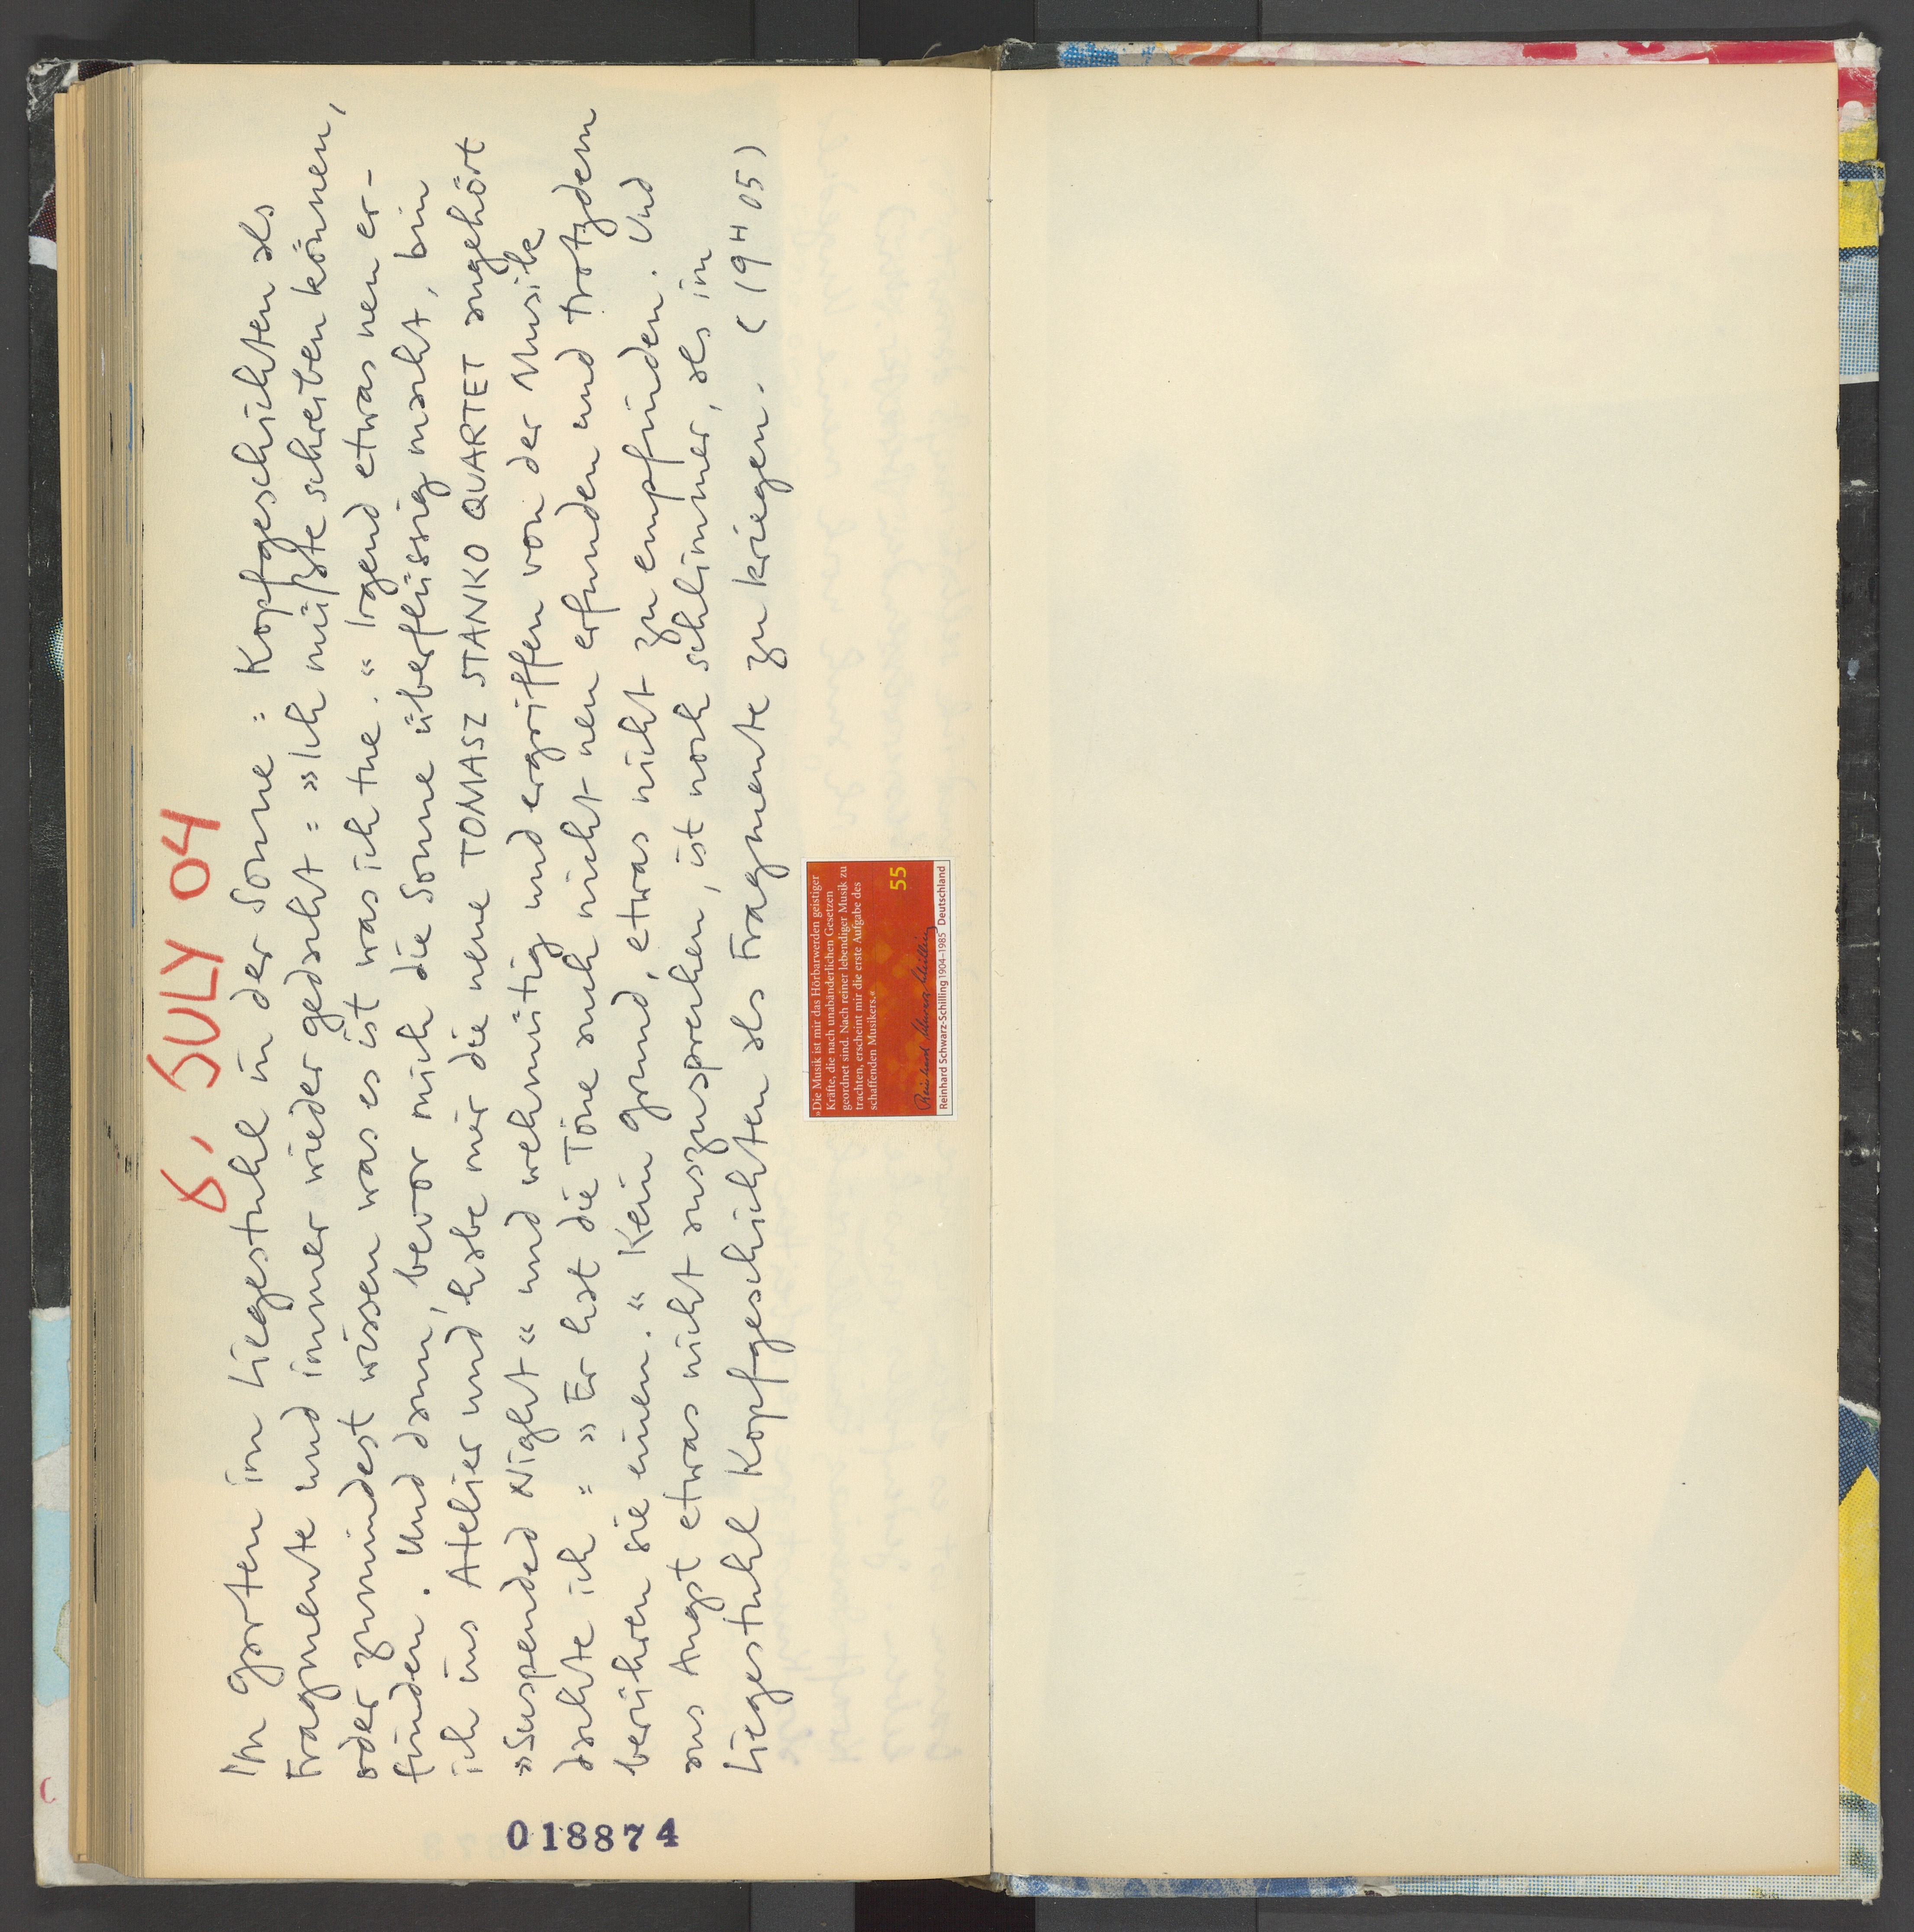 6, JULY 04
Im Garten im Liegestuhl in der Sonne = Kopfgeschichten als
Fragmente und immer wieder gedacht = »Ich müßte schreiben können,
oder zumindest wissen was es ist was ich tue.“ Irgend etwas neu er-
finden. Und dann, bevor mich die Sonne überflüssig macht, bin
ich ins Atelier und habe mir die neue TOMASZ STANKO QUARTET angehört
»Suspended Night“ und wehmütig und ergriffen von der Musik
dachte ich = »Er hat die Töne auch nicht neu erfunden und trotzdem
berühren sie einen.“ Kein Grund, etwas nicht zu empfinden. Und
aus Angst etwas nicht auszusprechen, ist noch schlimmer, als im
Liegestuhl Kopfgeschichten als Fragmente zu kriegen. (19H05)
»Die Musik ist mir das Hörbarwerden geistiger
Kräfte, die nach unabänderlichen Gesetzen
geordnet sind. Nach reiner lebendiger Musik zu
trachten, erscheint mir die erste Aufgabe des
schaffenden Musikers.«
55
Reinhard Schwarz-Schilling
Reinhard Schwarz-Schilling 1904–1985 Deutschland
018874